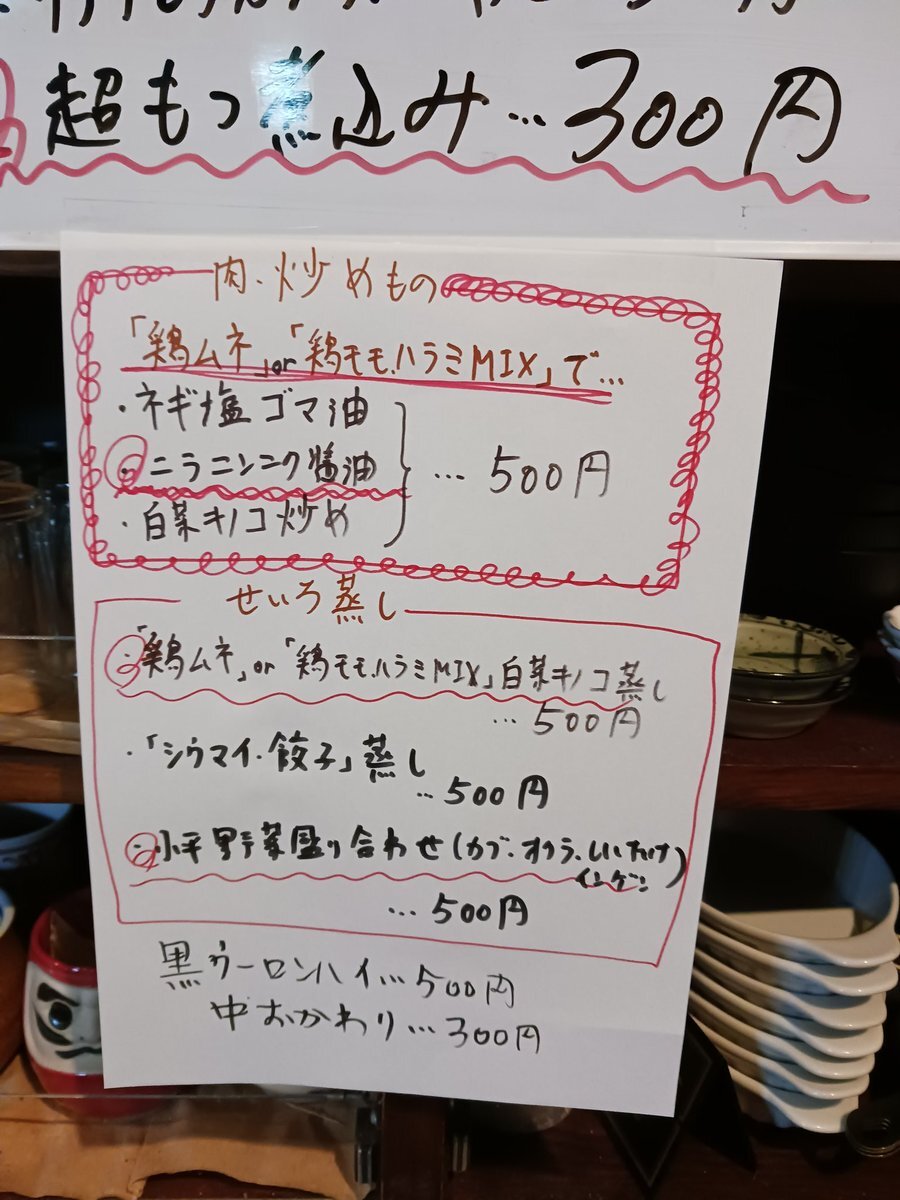 超もつ煮込み…300円
肉・炒めもの
「鶏ムネ」or「鶏モモ、ハラミMIX」で…
・ネギ塩ゴマ油
・ニラニンニク醤油
…500円
・白菜キノコ炒め
せいろ蒸し
・「鶏ムネ」or「鶏モモ、ハラミMIX」白菜キノコ蒸し
…500円
・「シウマイ・餃子」蒸し
…500円
・小平野菜盛り合わせ(カブ、オクラ、しいたけ
インゲン)
…500円
黒ウーロンハイ…500円
中おかわり…300円